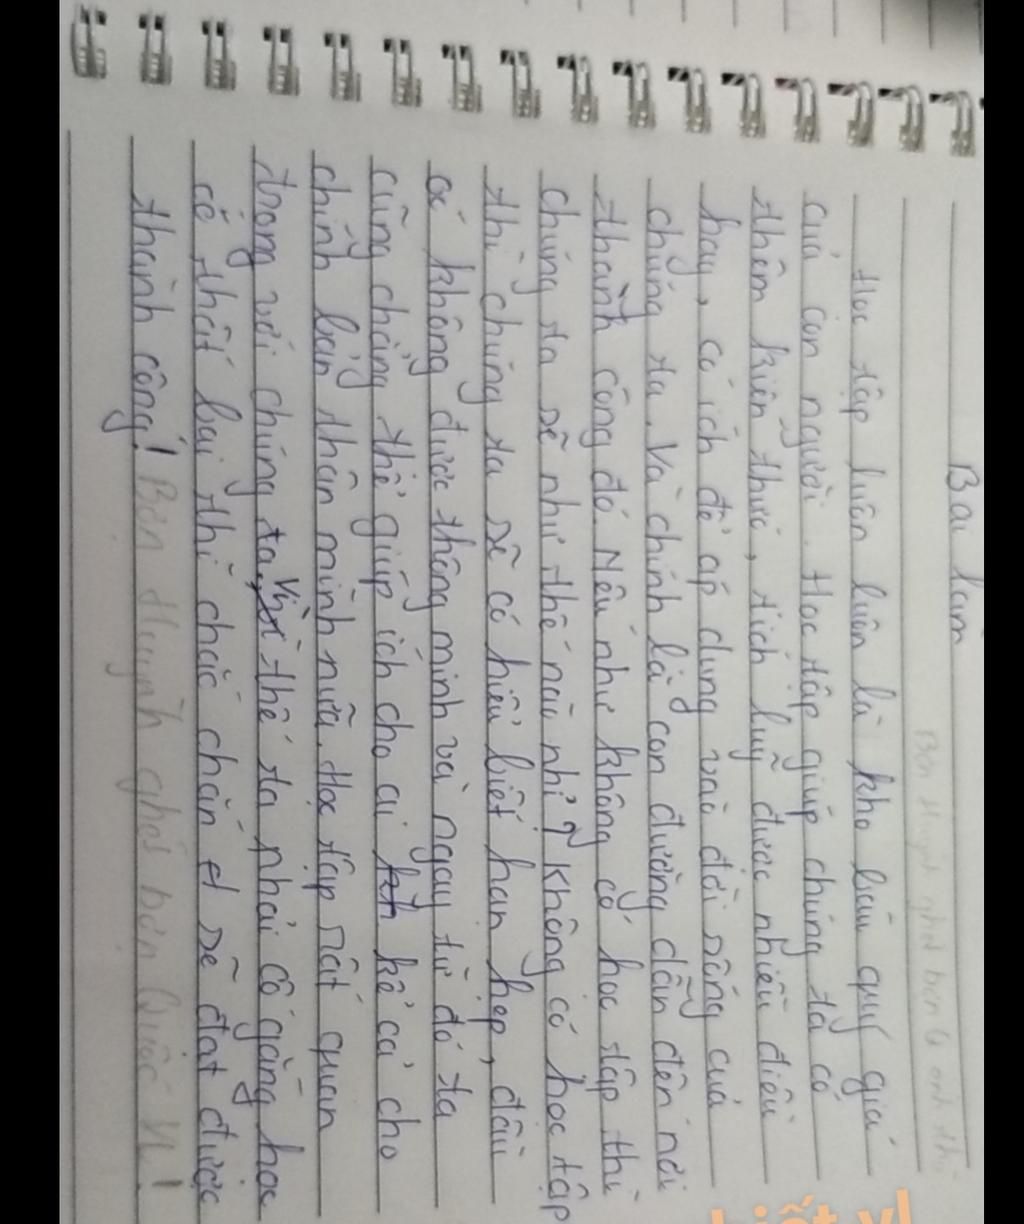 Bài làm
Học tập luôn luôn là kho báu quý giá
của con người. Học tập giúp chúng ta có
thêm kiến thức, tích luỹ được nhiều điều
hay, có ích để áp dụng vào đời sống của
chúng ta. Và chính là con đường dẫn đến nơi
thành công đó. Nếu như không có học tập thì
chúng ta sẽ như thế nào nhỉ? Không có học tập
thì chúng ta sẽ có hiểu biết hạn hẹp, đầu
óc không được thông minh và ngay từ đó ta
cũng chẳng thể giúp ích cho ai kể cả cho
chính bản thân mình nữa. Học tập rất quan
trọng với chúng ta. Vì thế ta phải cố gắng học
có thất bại thì chắc chắn sẽ đạt được
thành công! Bơn Huỳnh ghét bơn Quốc !
biết vl